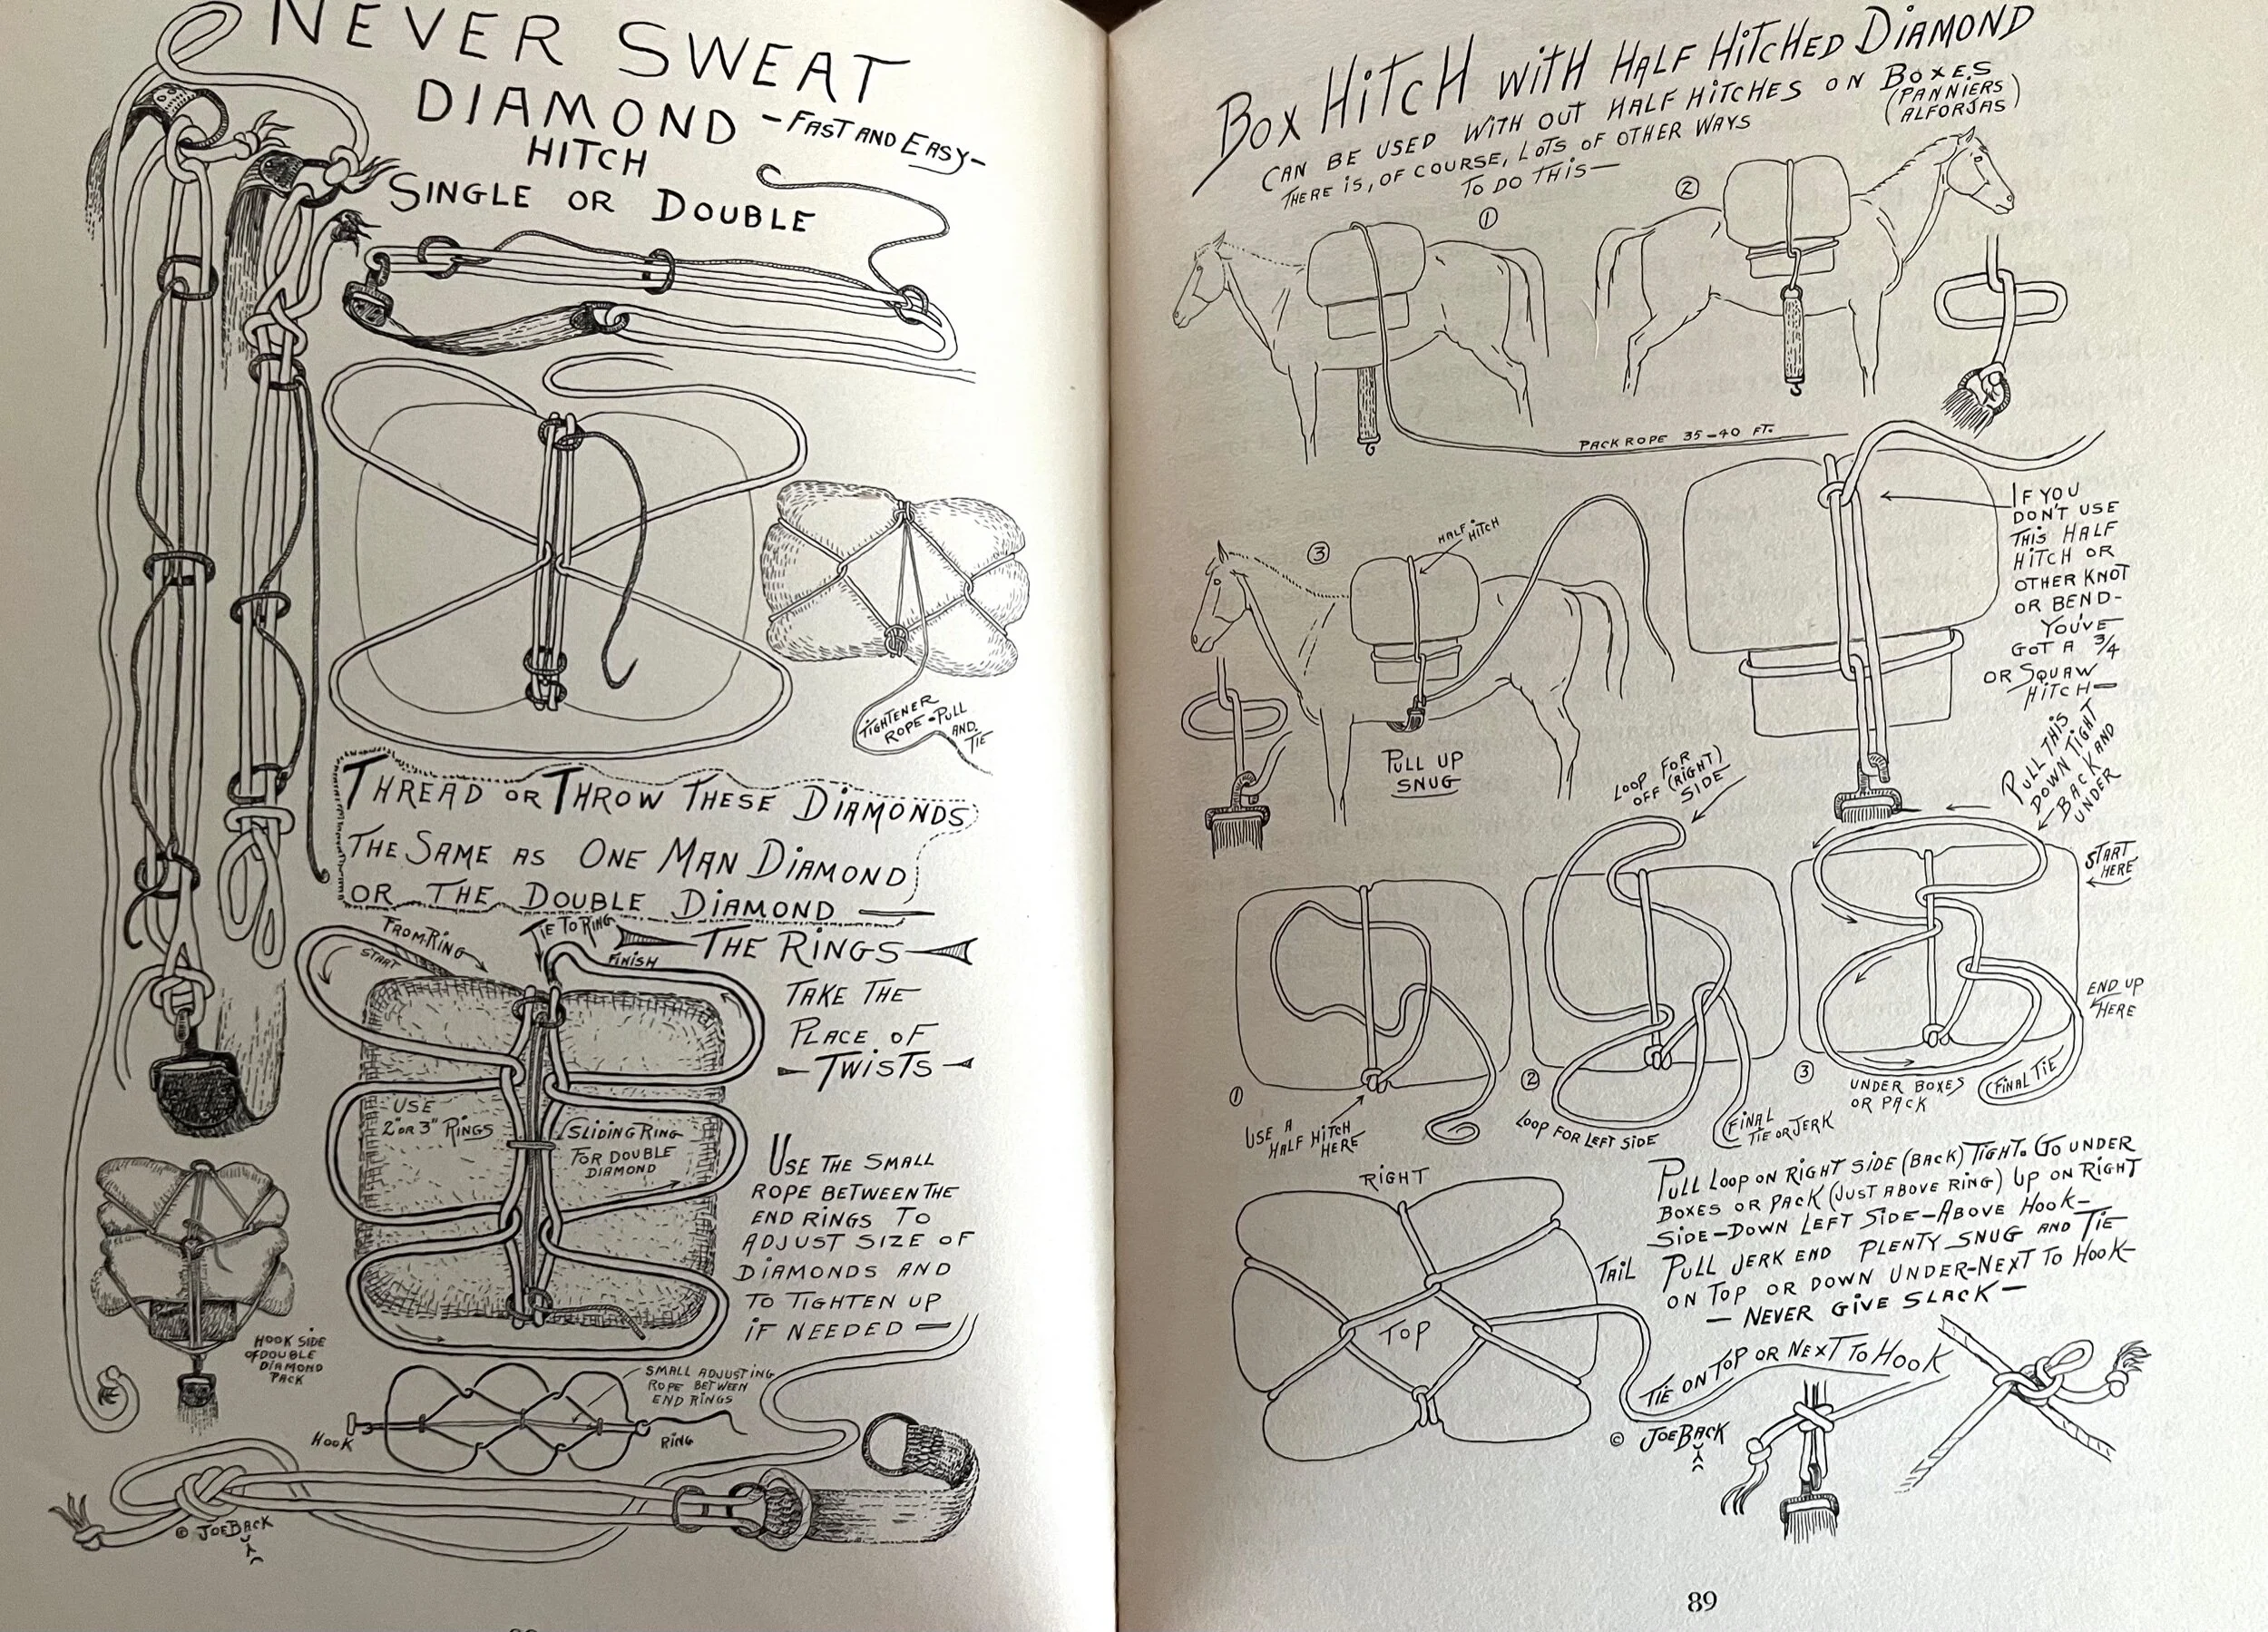 NEVER SWEAT
DIAMOND -FAST AND EASY-
HITCH
SINGLE OR DOUBLE
TIGHTENER
ROPE-PULL
AND
TIE
THREAD OR THROW THESE DIAMONDS
THE SAME AS ONE MAN DIAMOND
OR THE DOUBLE DIAMOND —
FROM RING
START
TIE TO RING
FINISH
THE RINGS
TAKE THE
PLACE OF
-TWISTS-
USE
2" OR 3" RINGS
SLIDING RING
FOR DOUBLE
DIAMOND
USE THE SMALL
ROPE BETWEEN THE
END RINGS TO
ADJUST SIZE OF
DIAMONDS AND
TO TIGHTEN UP
IF NEEDED —
HOOK SIDE
OF DOUBLE
DIAMOND
PACK
SMALL ADJUSTING
ROPE BETWEEN
END RINGS
HOOK
RING
© JOE BACK
BOX HITCH WITH HALF HITCHED DIAMOND
CAN BE USED WITH OUT HALF HITCHES ON BOXES
(PANNIERS
ALFORJAS)
THERE IS, OF COURSE, LOTS OF OTHER WAYS
TO DO THIS—
1
2
PACK ROPE 35-40 FT.
3
HALF HITCH
PULL UP
SNUG
IF YOU
DON'T USE
THIS HALF
HITCH OR
OTHER KNOT
OR BEND-
YOU'VE
GOT A 3/4
OR SQUAW
HITCH—
PULL THIS
DOWN TIGHT
BACK AND
UNDER
LOOP FOR
OFF (RIGHT)
SIDE
START
HERE
END UP
HERE
1
USE A
HALF HITCH
HERE
2
LOOP FOR LEFT SIDE
FINAL
TIE OR JERK
3
UNDER BOXES
OR PACK
FINAL TIE
PULL LOOP ON RIGHT SIDE (BACK) TIGHT. GO UNDER
BOXES OR PACK (JUST ABOVE RING) UP ON RIGHT
SIDE-DOWN LEFT SIDE-ABOVE HOOK-
PULL JERK END PLENTY SNUG AND TIE
ON TOP OR DOWN UNDER-NEXT TO HOOK-
— NEVER GIVE SLACK —
RIGHT
TAIL
TOP
TIE ON TOP OR NEXT TO HOOK
© JOE BACK
89